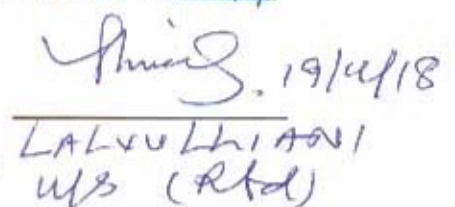 19/4/18
LALVULLIANI
U/S (Rtd)